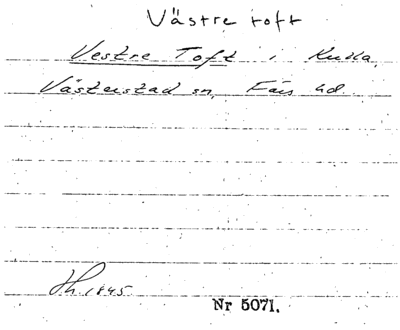 Västre toft
Vestre Toft i Kulla,
Västerstad sn, Färs hd
Th. 1845
Nr 5071.